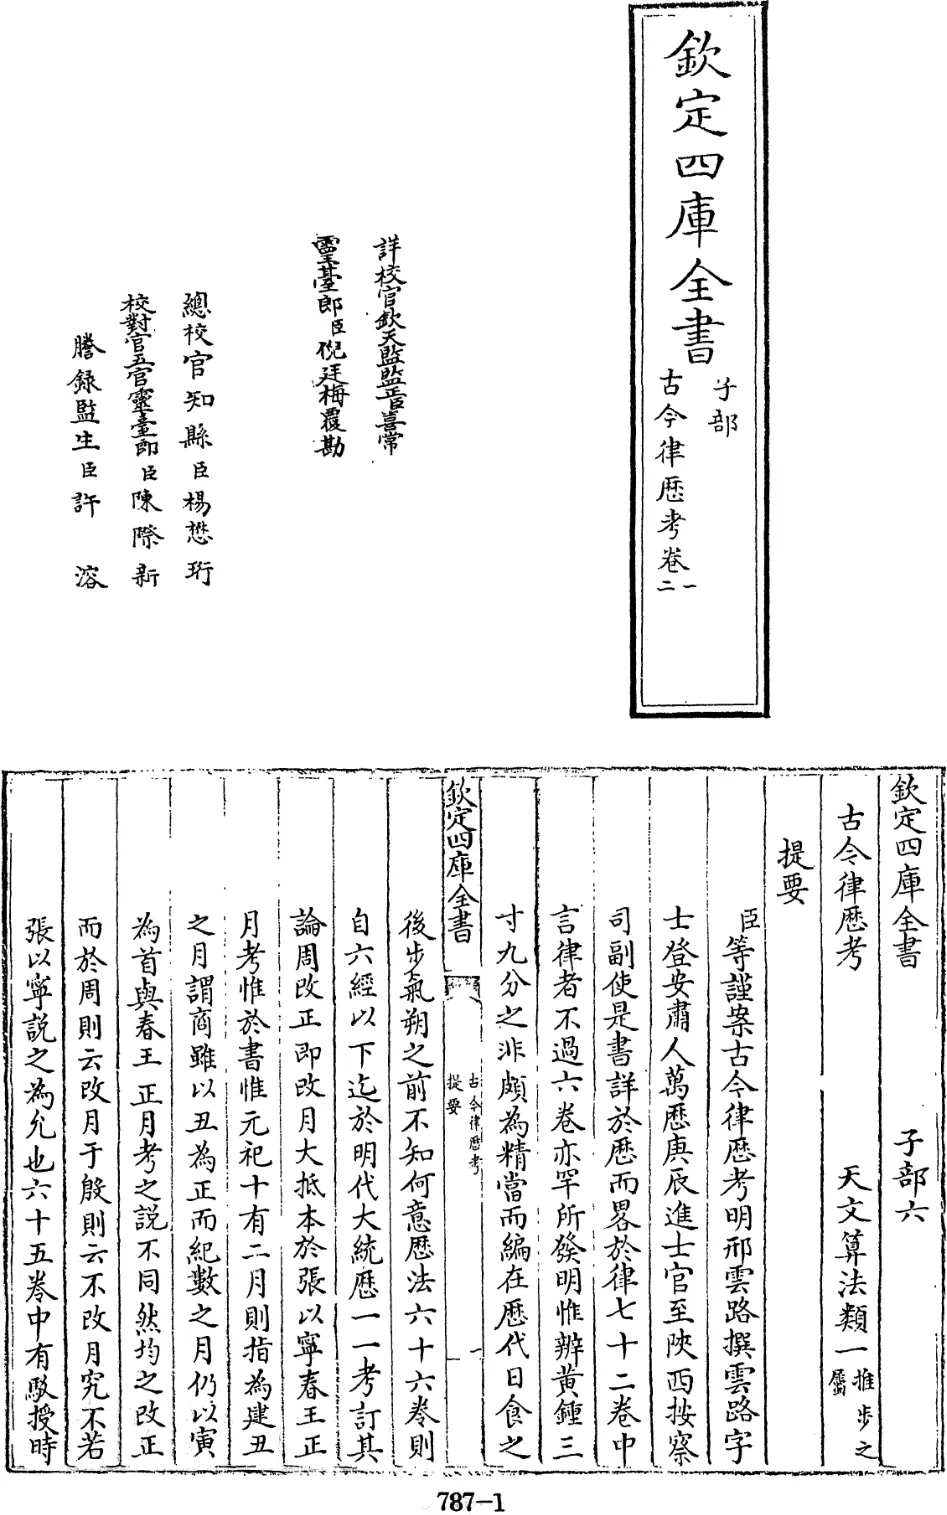 欽定四庫全書
子部
古今律歷考卷一
二
詳校官欽天監監正臣喜常
靈臺郎臣倪廷梅覆勘
總校官知縣臣楊懋珩
校對官五官靈臺郎臣陳際新
謄録監生臣許溶
欽定四庫全書 子部六
古今律歷考 天文算法類一推步之屬
提要
臣等謹案古今律歷考明邢雲路撰雲路字
士登安肅人萬歷庚辰進士官至陜西按察
司副使是書詳於歷而畧於律七十二卷中
言律者不過六卷亦罕所發明惟辨黄鍾三
寸九分之非頗為精當而編在歷代日食之
欽定四庫全書 古今律歷考提要 一
後步氣朔之前不知何意歷法六十六卷則
自六經以下迄於明代大統歷一一考訂其
論周改正即改月大抵本於張以寧春王正
月考惟於書惟元祀十有二月則指為建丑
之月謂商雖以丑為正而紀數之月仍以寅
為首與春王正月考之説不同然均之改正
而於周則云改月于殷則云不改月究不若
張以寧説之為允也六十五卷中有駁授時
787-1